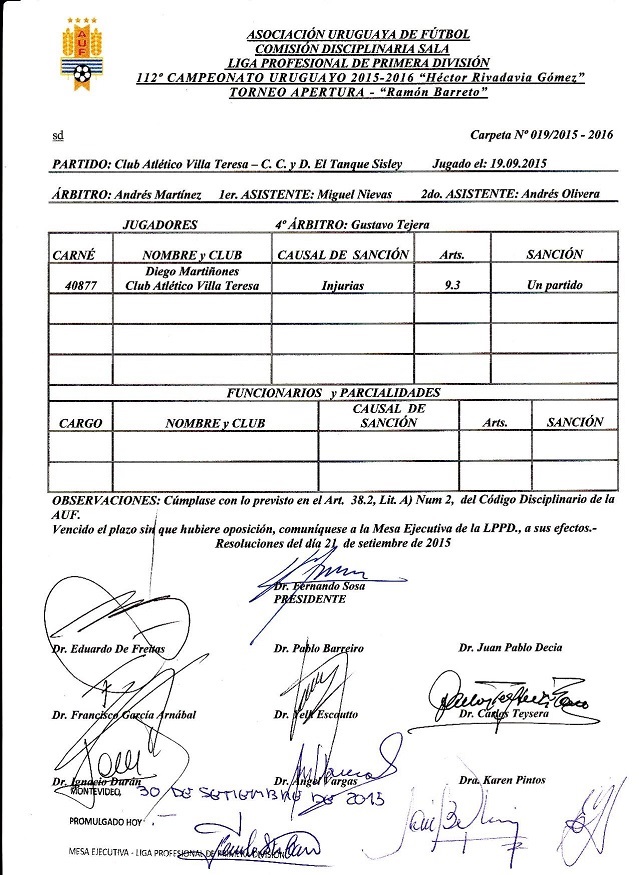 AUF
ASOCIACIÓN URUGUAYA DE FÚTBOL
COMISIÓN DISCIPLINARIA SALA
LIGA PROFESIONAL DE PRIMERA DIVISIÓN
112º CAMPEONATO URUGUAYO 2015-2016 “Héctor Rivadavia Gómez”
TORNEO APERTURA - “Ramón Barreto”
sd Carpeta Nº 019/2015 - 2016
PARTIDO: Club Atlético Villa Teresa – C. C. y D. El Tanque Sisley Jugado el: 19.09.2015
ÁRBITRO: Andrés Martínez 1er. ASISTENTE: Miguel Nievas 2do. ASISTENTE: Andrés Olivera
JUGADORES 4º ÁRBITRO: Gustavo Tejera
CARNÉ NOMBRE y CLUB CAUSAL DE SANCIÓN Arts. SANCIÓN
Diego Martiñones
40877 Club Atlético Villa Teresa Injurias 9.3 Un partido
FUNCIONARIOS y PARCIALIDADES
CARGO NOMBRE y CLUB CAUSAL DE SANCIÓN Arts. SANCIÓN
OBSERVACIONES: Cúmplase con lo previsto en el Art. 38.2, Lit. A) Num 2, del Código Disciplinario de la
AUF.
Vencido el plazo sin que hubiere oposición, comuníquese a la Mesa Ejecutiva de la LPPD., a sus efectos.-
Resoluciones del día 21 de setiembre de 2015
Dr. Fernando Sosa
PRESIDENTE
Dr. Eduardo De Freitas Dr. Pablo Barreiro Dr. Juan Pablo Decia
Dr. Francisco García Arnábal Dr. Yelt Escoutto Dr. Carlos Teysera
Dr. Ignacio Durán Dr. Angel Vargas Dra. Karen Pintos
MONTEVIDEO, 30 DE SETIEMBRE DE 2015
PROMULGADO HOY
MESA EJECUTIVA - LIGA PROFESIONAL DE PRIMERA DIVISIÓN